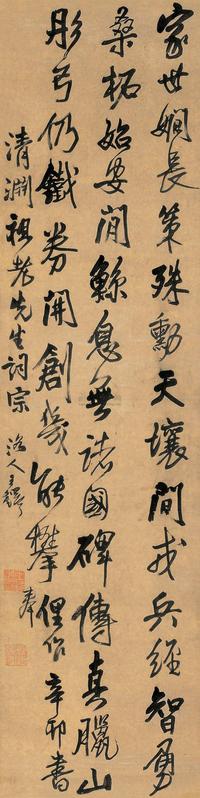 家世嫻長策殊勳天壤間戎兵經智勇
桑柘始安閒鯨息無諸國碑傳真臘山
彤弓仍鐵券開創幾能攀俚作辛卯書奉
清淵祖老先生詞宗 洛人王鐸